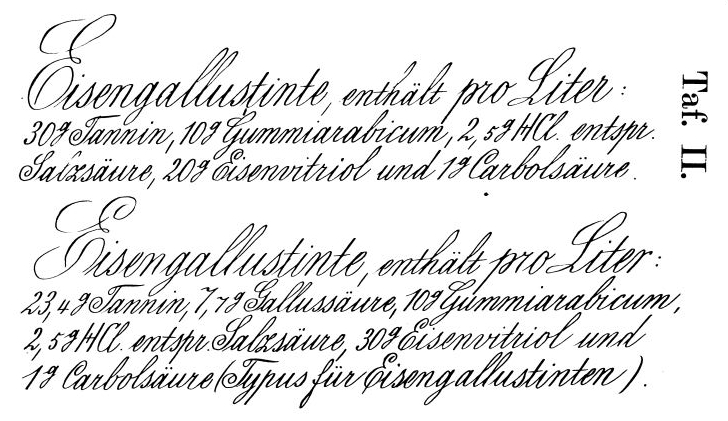 Eisengallustinte, enthält pro Liter:
30g Tannin, 10g Gummiarabicum, 2,5g HCl. entspr.
Salzsäure, 20g Eisenvitriol und 1g Carbolsäure.
Eisengallustinte, enthält pro Liter:
23,4g Tannin, 7,7g Gallussäure, 10g Gummiarabicum,
2,5g HCl. entspr. Salzsäure, 30g Eisenvitriol und
1g Carbolsäure (Typus für Eisengallustinten).
Taf. II.